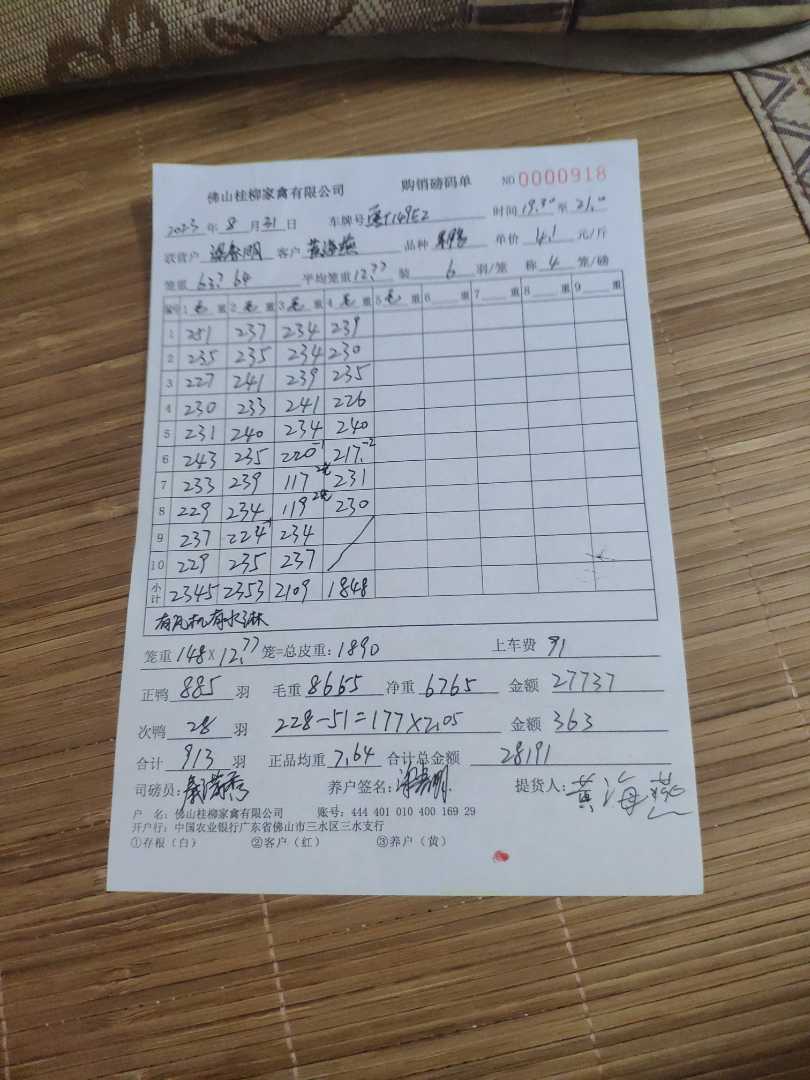 佛山桂柳家禽有限公司 购销磅码单 NO 0000918
2023 年 8 月 31 日 车牌号 时间 19.30 至 21.00
联营户 客户 黄海燕 品种 单价 4.1 元/斤
笼重 637 64 平均笼重 12.77 装 6 羽/笼 称 4 笼/磅
编号 1 毛 重 2 毛 重 3 毛 重 4 毛 重 5 毛 重 6 重 7 重 8 重 9 重
1 251 237 234 239
2 235 235 234 230
3 227 241 239 235
4 230 233 241 226
5 231 240 234 240
6 243 235 220-1 217-2
7 233 239 117 231
8 229 234 119 230
9 237 224 234
10 229 235 237
小计 2345 2353 2109 1848
有风机有水淋
笼重 148 × 12.77 笼=总皮重: 1890 上车费 91
正鸭 885 羽 毛重 8665 净重 6765 金额 27737
次鸭 28 羽 228-51=177×2.05 金额 363
合计 913 羽 正品均重 7.64 合计总金额 28191
司磅员: 养户签名: 提货人: 黄海燕
户 名: 佛山桂柳家禽有限公司 账号: 444 401 010 400 169 29
开户行: 中国农业银行广东省佛山市三水区三水支行
①存根(白) ②客户(红) ③养户(黄)